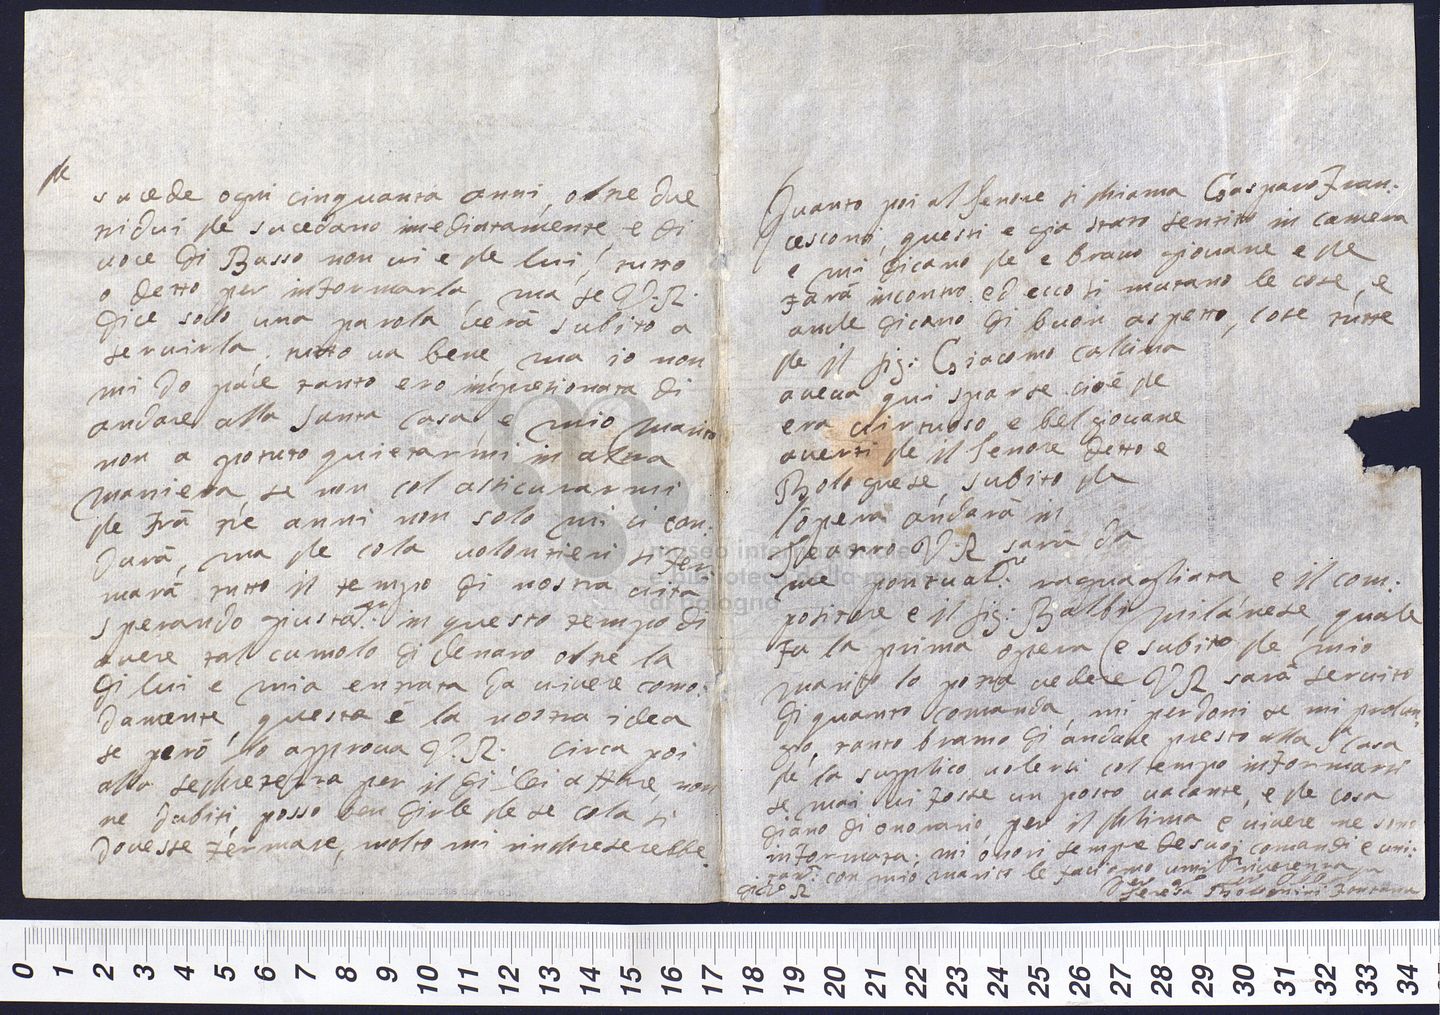 che
sucede ogni cinquanta anni, oltre due
tridui che sucedano imediatamente e di
voce di Basso non vi e che lui, tutto
o detto per informarla, ma se V.R.
dice solo una parola verà subito a
servirla, tutto va bene ma io non
mi do pace tanto ero impresionata di
andare alla Santa Casa e mio marito
non a potuto quietarmi in alcua
maniera se non col assicurarmi
che frà tre anni non solo mi ci con:
durà, ma che cola volontieri si fer:
marà tutto il tempo di nostra vita
sperando giusta.te in questo tempo di
avere tal cumolo di denaro oltre la
di lui e mia entrata da vivere como:
damente, questa è la nostra idea
se però lo approva V.R. Circa poi
alla segretezza per il di Lei affare, non
ne dubiti, posso ben dirle che se cola si
dovesse fermare, molto mi rincreserebbe.
Quanto poi al Tenore si chiama Gasparo Fran:
cesconi, questi e gia stato sentito in camera
e mi dicano che e bravo giovane e che
farà incontro ed ecco si mutano le cose, e
anche dicano di buon aspetto, cose tutte
che il Sig: Giacomo
aveva qui sparse cioè che
era virtuoso e bel giovane
averti che il Tenore detto e
Bolognese subito che
l'opera andarà in
Theatro V.R sarà da
me pontual.te raguagliata e il com:
positore e il Sig: Balbi Milánese, quale
fa la prima opera e subito che mio
marito lo potrà vedere VR sarà servito
di quanto comanda, mi perdoni se mi prolun:
go, tanto bramo di andare presto alla S.a Casa
che la supplico volersi col tempo informarsi
se mai vi fosse un posto vacante, e che cosa
diano di onorario, per il clima e vivere ne sono
informata; mi onori sempre de suoi comandi e uni:
tam.te con mio marito le faciamo umil.ma riverenza
di V. R
Teresa Bolognini Fontana
0 1 2 3 4 5 6 7 8 9 10 11 12 13 14 15 16 17 18 19 20 21 22 23 24 25 26 27 28 29 30 31 32 33 34
museo internazionale
e biblioteca della musica
di bologna